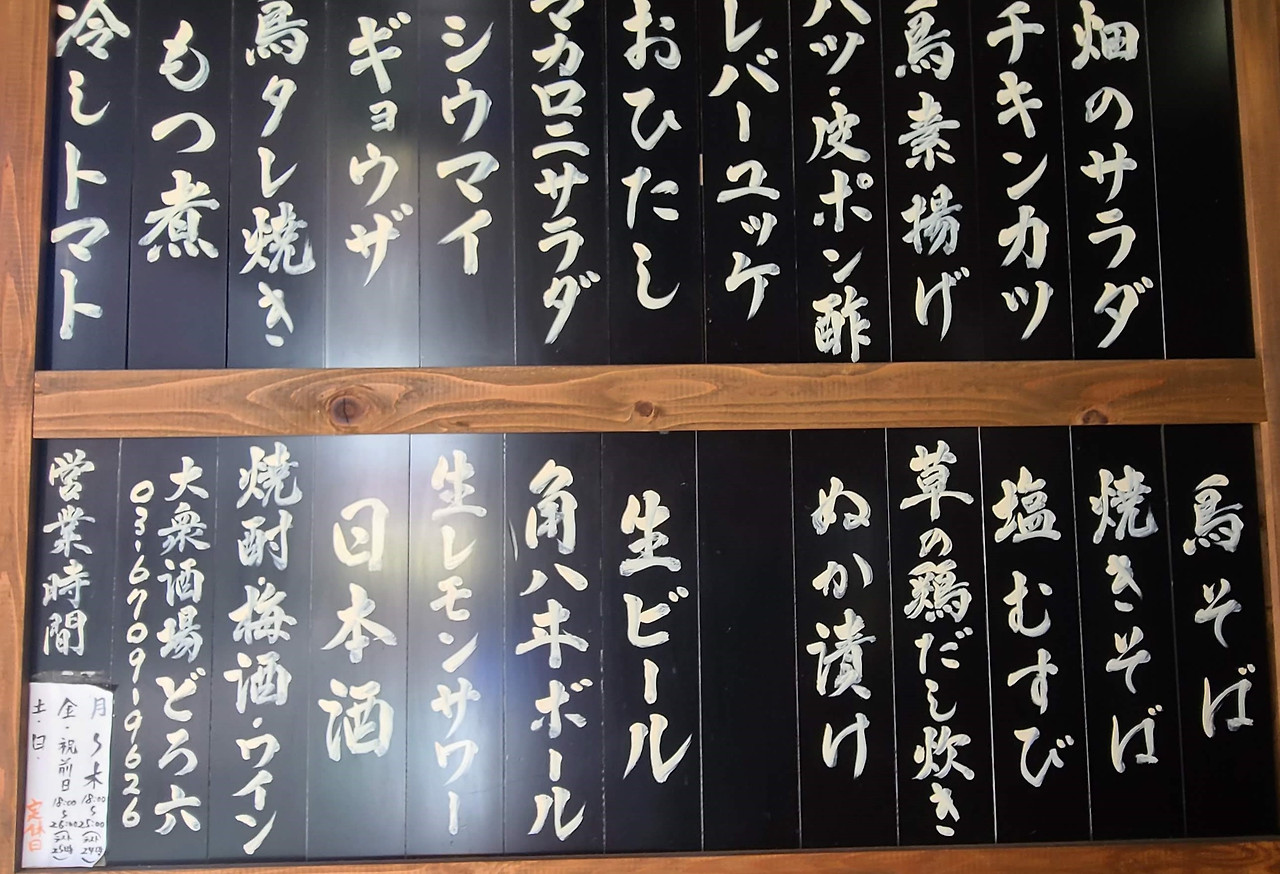 畑のサラダ
チキンカツ
鳥素揚げ
ハツ・皮ポン酢
レバーユッケ
おひたし
マカロニサラダ
シウマイ
ギョウザ
鳥タレ焼き
もつ煮
冷しトマト
鳥そば
焼きそば
塩むすび
草の鶏だし炊き
ぬか漬け
生ビール
角ハヰボール
生レモンサワー
日本酒
焼酎・梅酒・ワイン
大衆酒場どろ六
03-6709-9626
営業時間
月〜木 18:00〜25:00
金・祝前日 18:00〜26:00
土・日・定休日